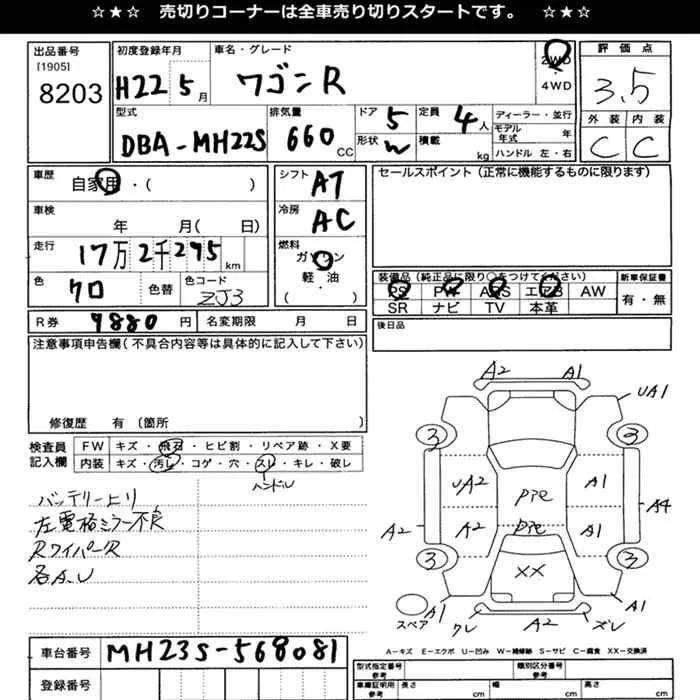 ☆★☆ 売切りコーナーは全車売り切りスタートです。 ☆★☆
出品番号
[1905]
8203
初度登録年月
H22 5月
車名・グレード
ワゴンR
2WD
・
4WD
評価点
3.5
外装 内装
C C
型式
DBA-MH22S
排気量
660 CC
ドア 5
形状 W
定員 4人
積載 kg
ディーラー・並行
モデル年式 年
ハンドル 左・右
車歴
自家用・( )
車検
年 月( 日)
走行
17万2千275 km
色
クロ
色替
色コード
ZJ3
シフト
AT
冷房
AC
燃料
ガソリン
軽・油
( )
セールスポイント(正常に機能するものに限ります)
装備品(純正品に限り○をつけてください)
PS PW ABS エアB AW
SR ナビ TV 本革
新車保証書
有・無
後日品
R券 9880円
名変期限 月 日
注意事項申告欄(不具合内容等は具体的に記入して下さい)
修復歴 有〔箇所 〕
検査員記入欄
FW キズ・飛石・ヒビ割・リペア跡・X要
内装 キズ・汚レ・コゲ・穴・スレ・キレ・破レ
ハンドル
バッテリー上り
左電格ミラー不良
RワイパーR
各A.U
A2 A1
UA1
3 3
UA2 A1
A4
A2
A2 A1
3 3
XX
スペア
A1 クレ A2 ズレ A1
A−キズ E−エクボ U−凹み W−補修跡 S−サビ C−腐食 XX−交換済
車台番号
MH23S-568081
登録番号
型式指定番号 類別区分番号
車庫証明用参考 長さ cm 幅 cm 高さ cm